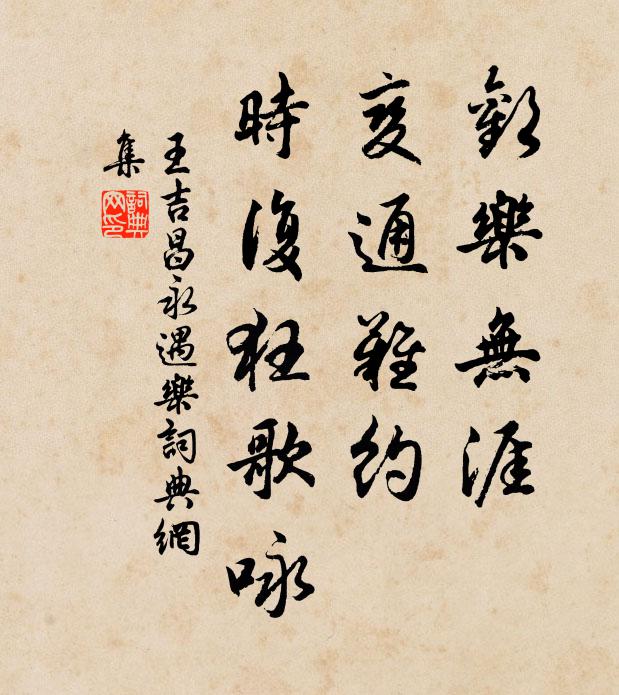 歡樂無涯
变通難約
時復狂歌咏
王吉昌永遇樂詞典網
集
詞典
网印